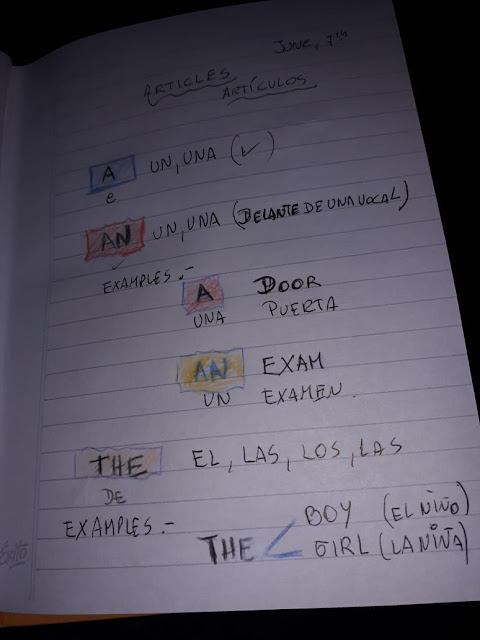 JUNE, 7th
ARTICLES
ARTÍCULOS
A UN, UNA (✓)
e
AN UN, UNA (DELANTE DE UNA VOCAL)
EXAMPLES.-
A DOOR
UNA PUERTA
AN EXAM
UN EXAMEN.
THE EL, LAS, LOS, LAS
DE
EXAMPLES.-
BOY (EL NIÑO)
THE
GIRL (LA NIÑA)
Éxito